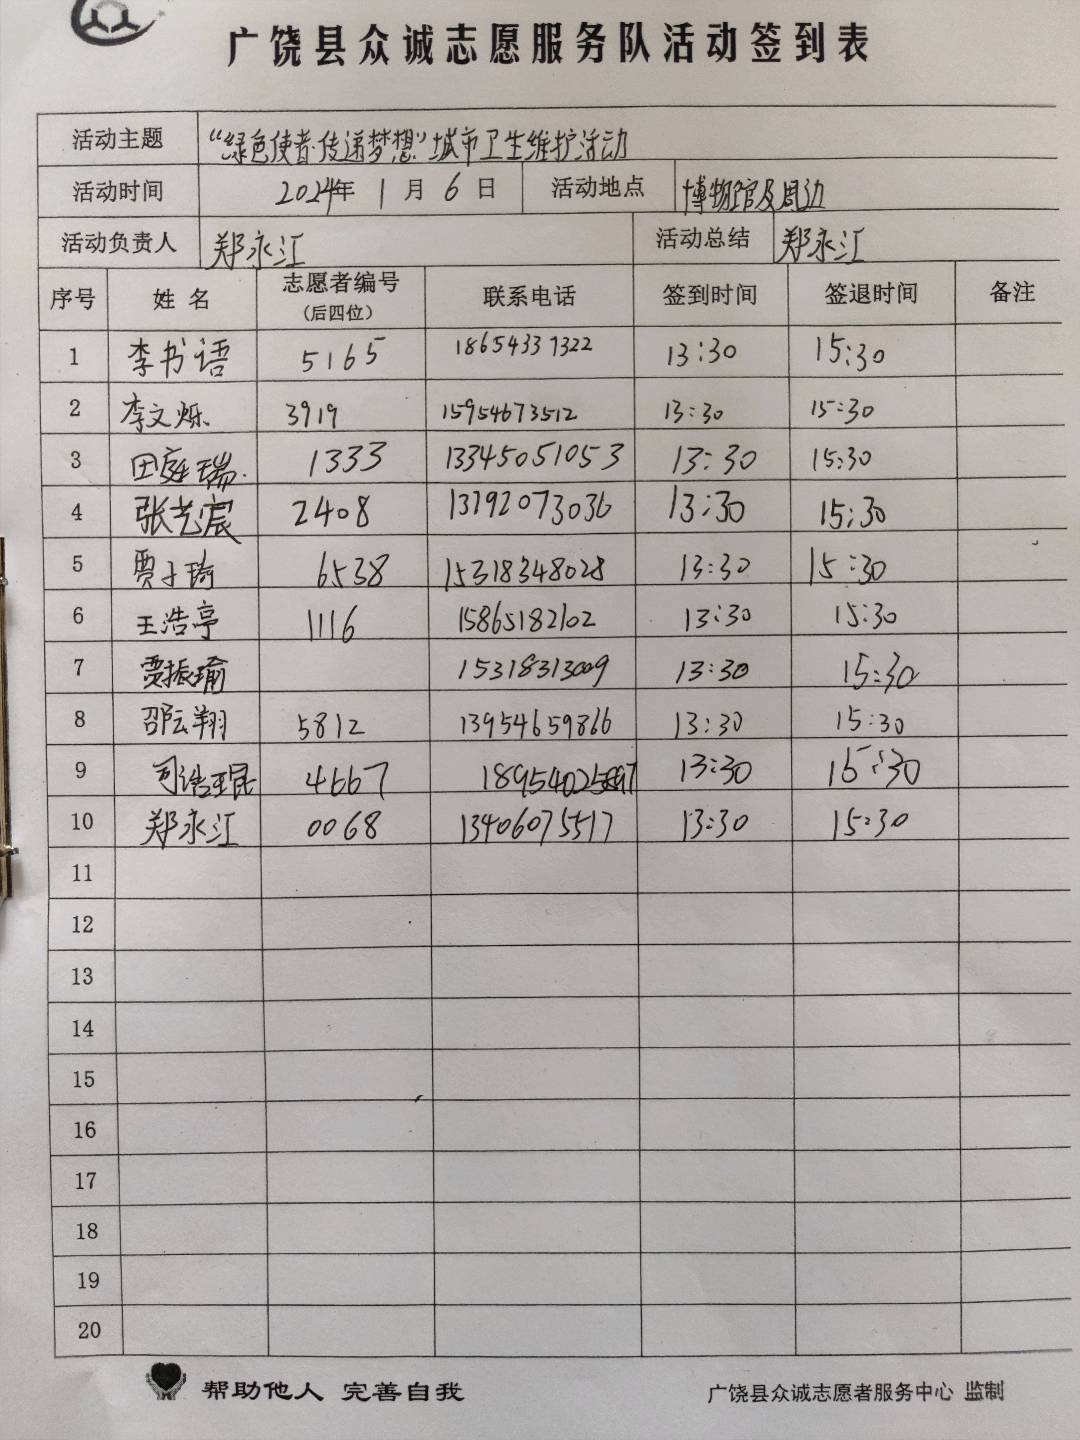 广饶县众诚志愿服务队活动签到表
活动主题 “绿色使者·传递梦想”城市卫生维护活动
活动时间 2024年 1 月 6 日 活动地点 博物馆及周边
活动负责人 郑永江 活动总结 郑永江
序号 姓 名 志愿者编号 (后四位) 联系电话 签到时间 签退时间 备注
1 李书语 5165 18654337322 13:30 15:30
2 李文烁 3919 15954673512 13:30 15:30
3 田庭瑞 1333 13345051053 13:30 15:30
4 张艺宸 2408 13792073036 13:30 15:30
5 贾子琦 6538 15318348028 13:30 15:30
6 王浩亭 1116 15865182102 13:30 15:30
7 贾振瑜 15318313009 13:30 15:30
8 邵云翔 5812 13954659866 13:30 15:30
9 4667 13:30 15:30
10 郑永江 0068 13406075517 13:30 15:30
11
12
13
14
15
16
17
18
19
20
帮助他人 完善自我 广饶县众诚志愿者服务中心 监制